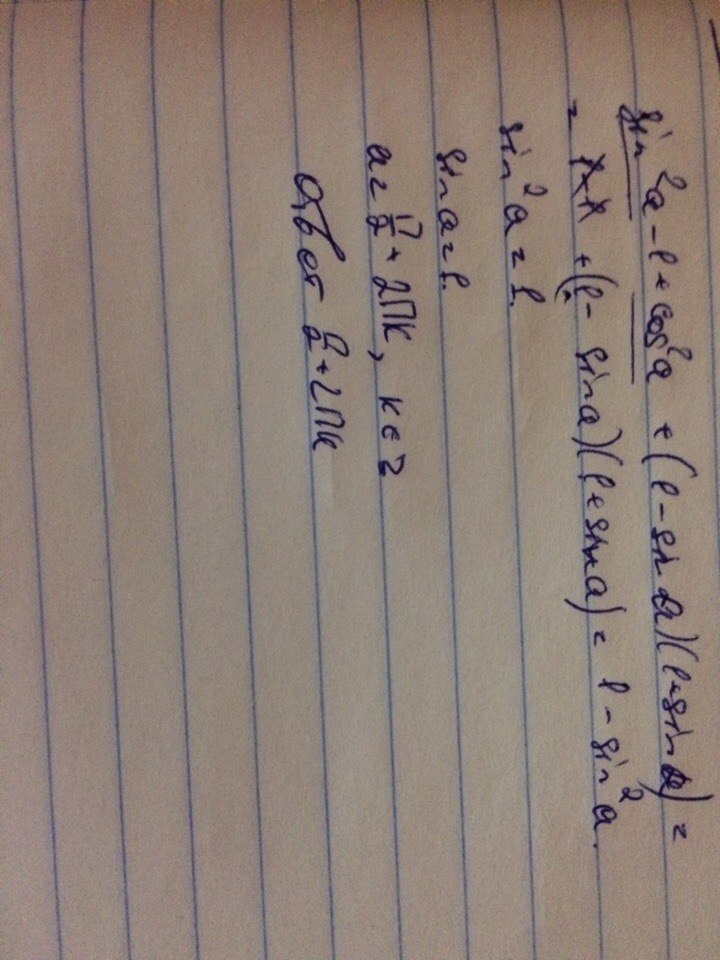 sin²a - 1 + cos²a + (1 - sin a)(1 + sin a) =
= + (1 - sin a)(1 + sin a) = 1 - sin²a.
sin²a = 1.
sin a = 1.
a = π/2 + 2πk, k ∈ Z
Ответ π/2 + 2πk